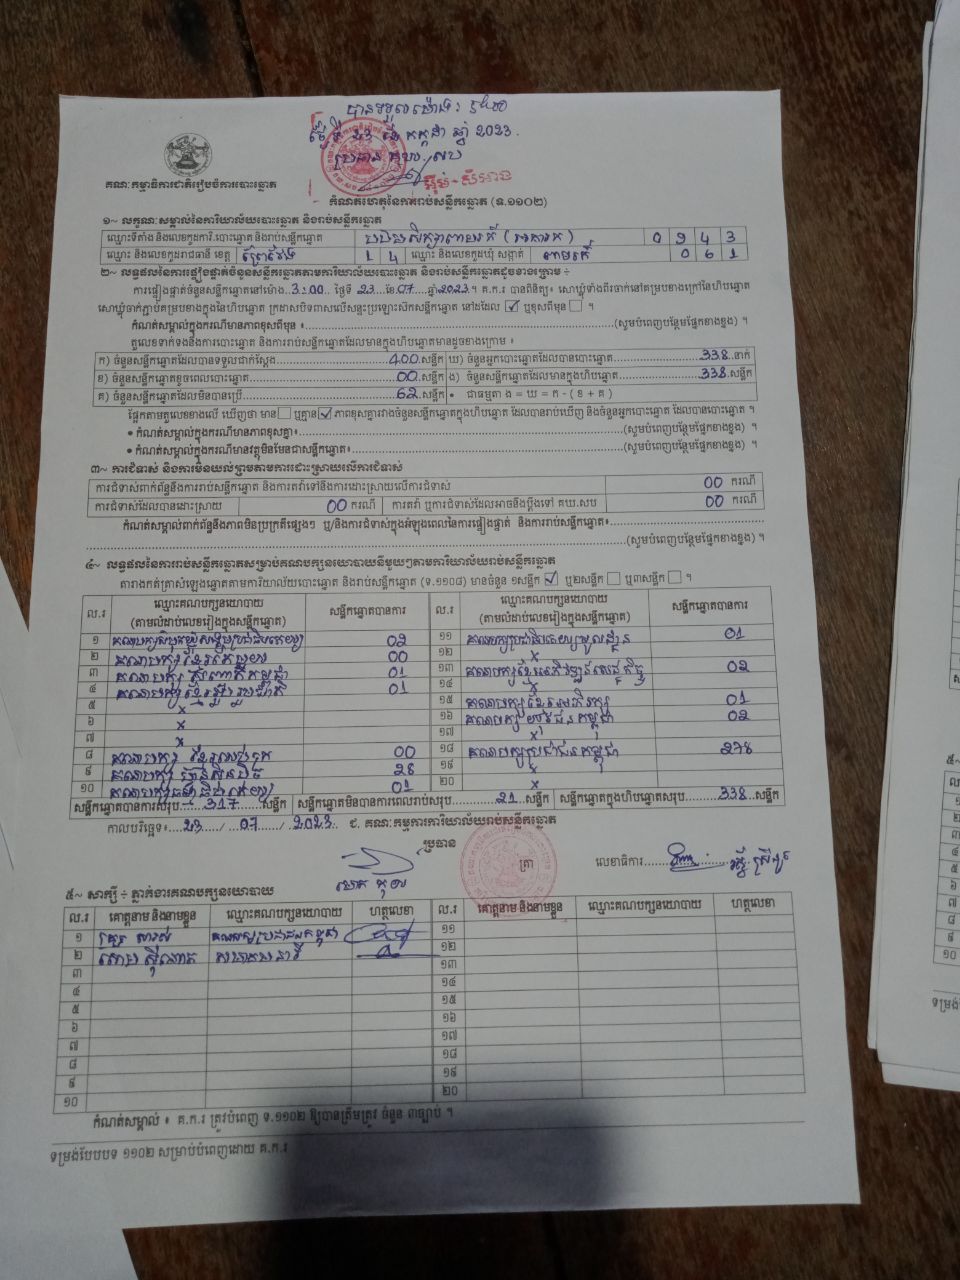 បានទទួលម៉ោង: 5:40
ថ្ងៃទី 23 ខែ កក្កដា ឆ្នាំ 2023.
ប្រធាន គឃ.សប
គណៈកម្មាធិការជាតិរៀបចំការបោះឆ្នោត
កំណត់ហេតុនៃការរាប់សន្លឹកឆ្នោត (ទ.១១០២)
១~ លក្ខណៈសម្គាល់នៃការិយាល័យបោះឆ្នោត និងរាប់សន្លឹកឆ្នោត
ឈ្មោះទីតាំង និងលេខកូដការិ.បោះឆ្នោត និងរាប់សន្លឹកឆ្នោត 0 9 4 3
ឈ្មោះ និងលេខកូដរាជធានី ខេត្ត ព្រៃវែង 1 4 ឈ្មោះ និងលេខកូដឃុំ សង្កាត់ 0 6 1
២~ លទ្ធផលនៃការផ្ទៀងផ្ទាត់ចំនួនសន្លឹកឆ្នោតតាមការិយាល័យបោះឆ្នោត និងរាប់សន្លឹកឆ្នោតដូចខាងក្រោម ÷
ការផ្ទៀងផ្ទាត់ចំនួនសន្លឹកឆ្នោតនៅម៉ោង..3:00.. ថ្ងៃទី.23..ខែ.07....ឆ្នាំ2023.។ គ.ក.រ បានពិនិត្យ៖ សោឃ្លុំទាំងពីរចាក់នៅគម្របខាងក្រៅនៃហិបឆ្នោត
សោឃ្លុំចាក់ភ្ជាប់គម្របខាងក្នុងនៃហិបឆ្នោត ក្រដាសបិទពាសលើសន្ទះប្រឡោះស៊កសន្លឹកឆ្នោត នៅដដែល ☑ ឬខុសពីមុន ☐ ។
កំណត់សម្គាល់ក្នុងករណីមានភាពខុសពីមុន ៖..........(សូមបំពេញបន្ថែមផ្នែកខាងខ្នង) ។
តួលេខទាក់ទងនឹងការបោះឆ្នោត និងការរាប់សន្លឹកឆ្នោតដែលមានក្នុងហិបឆ្នោតមានដូចខាងក្រោម ៖
ក) ចំនួនសន្លឹកឆ្នោតដែលបានទទួលជាក់ស្តែង..........400..សន្លឹក ឃ) ចំនួនអ្នកបោះឆ្នោតដែលបានបោះឆ្នោត..........338..នាក់
ខ) ចំនួនសន្លឹកឆ្នោតខូចពេលបោះឆ្នោត..........00..សន្លឹក ង) ចំនួនសន្លឹកឆ្នោតដែលមានក្នុងហិបឆ្នោត..........338..សន្លឹក
គ) ចំនួនសន្លឹកឆ្នោតដែលមិនបានប្រើ..........62..សន្លឹក • ជាធម្មតា ង = ឃ = ក - ( ខ + គ )
ផ្អែកតាមតួលេខខាងលើ ឃើញថា មាន ☐ ឬគ្មាន ☑ ភាពខុសគ្នារវាងចំនួនសន្លឹកឆ្នោតក្នុងហិបឆ្នោត ដែលបានរាប់ឃើញ និងចំនួនអ្នកបោះឆ្នោត ដែលបានបោះឆ្នោត ។
• កំណត់សម្គាល់ក្នុងករណីមានភាពខុសគ្នា៖..........(សូមបំពេញបន្ថែមផ្នែកខាងខ្នង) ។
• កំណត់សម្គាល់ក្នុងករណីមានវត្ថុមិនមែនជាសន្លឹកឆ្នោត៖..........(សូមបំពេញបន្ថែមផ្នែកខាងខ្នង) ។
៣~ ការជំទាស់ និងការមិនយល់ព្រមតាមការដោះស្រាយលើការជំទាស់
ការជំទាស់ពាក់ព័ន្ធនឹងការរាប់សន្លឹកឆ្នោត និងការតវ៉ាទៅនឹងការដោះស្រាយលើការជំទាស់ 00 ករណី
ការជំទាស់ដែលបានដោះស្រាយ 00 ករណី ការតវ៉ា ឬការជំទាស់ដែលអាចនឹងប្តឹងទៅ គឃ.សប 00 ករណី
កំណត់សម្គាល់ពាក់ព័ន្ធនឹងភាពមិនប្រក្រតីផ្សេងៗ ឬ/និងការជំទាស់ក្នុងអំឡុងពេលនៃការផ្ទៀងផ្ទាត់ និងការរាប់សន្លឹកឆ្នោត៖..........
..........(សូមបំពេញបន្ថែមផ្នែកខាងខ្នង) ។
៤~ លទ្ធផលនៃការរាប់សន្លឹកឆ្នោតសម្រាប់គណបក្សនយោបាយនីមួយៗតាមការិយាល័យរាប់សន្លឹកឆ្នោត
តារាងកត់ត្រាសំឡេងឆ្នោតតាមការិយាល័យបោះឆ្នោត និងរាប់សន្លឹកឆ្នោត (ទ.១១០៨) មានចំនួន ១សន្លឹក ☑ ឬ២សន្លឹក ☐ ឬ៣សន្លឹក ☐ ។
ល.រ ឈ្មោះគណបក្សនយោបាយ (តាមលំដាប់លេខរៀងក្នុងសន្លឹកឆ្នោត) សន្លឹកឆ្នោតបានការ ល.រ ឈ្មោះគណបក្សនយោបាយ (តាមលំដាប់លេខរៀងក្នុងសន្លឹកឆ្នោត) សន្លឹកឆ្នោតបានការ
១ គណបក្សសំបុកឃ្មុំសង្គមប្រជាធិបតេយ្យ 02 ១១ គណបក្សប្រជាធិបតេយ្យមូលដ្ឋាន 01
២ គណបក្ស ខ្មែរតែមួយ 00 ១២ x
៣ គណបក្ស សញ្ជាតិកម្ពុជា 01 ១៣ គណបក្សខ្មែរអភិវឌ្ឍន៍សេដ្ឋកិច្ច 02
៤ គណបក្សខ្មែររួបរួមជាតិ 01 ១៤ x
៥ x ១៥ គណបក្សខ្មែរអភិរក្ស 01
៦ x ១៦ គណបក្សយុវជនកម្ពុជា 02
៧ x ១៧ x
៨ គណបក្ស ខ្មែរឈប់ក្រ 00 ១៨ គណបក្សប្រជាជនកម្ពុជា 278
៩ គណបក្ស ហ៊្វុនស៊ិនប៉ិច 28 ១៩ x
១០ គណបក្សធម្មាធិបតេយ្យ 01 ២០ x
សន្លឹកឆ្នោតបានការសរុប..317..សន្លឹក សន្លឹកឆ្នោតមិនបានការពេលរាប់សរុប..21..សន្លឹក សន្លឹកឆ្នោតក្នុងហិបឆ្នោតសរុប..338..សន្លឹក
កាលបរិច្ឆេទ៖..23../..07../..2023.. ជ. គណៈកម្មការការិយាល័យរាប់សន្លឹកឆ្នោត
ប្រធាន
ត្រា
លេខាធិការ..........
៥~ សាក្សី ÷ ភ្នាក់ងារគណបក្សនយោបាយ
ល.រ គោត្តនាម និងនាមខ្លួន ឈ្មោះគណបក្សនយោបាយ ហត្ថលេខា ល.រ គោត្តនាម និងនាមខ្លួន ឈ្មោះគណបក្សនយោបាយ ហត្ថលេខា
១ គណបក្សប្រជាជនកម្ពុជា ១១
២ ១២
៣ ១៣
៤ ១៤
៥ ១៥
៦ ១៦
៧ ១៧
៨ ១៨
៩ ១៩
១០ ២០
កំណត់សម្គាល់ ៖ គ.ក.រ ត្រូវបំពេញ ទ.១១០២ ឱ្យបានត្រឹមត្រូវ ចំនួន ៣ច្បាប់ ។
ទម្រង់បែបបទ ១១០២ សម្រាប់បំពេញដោយ គ.ក.រ